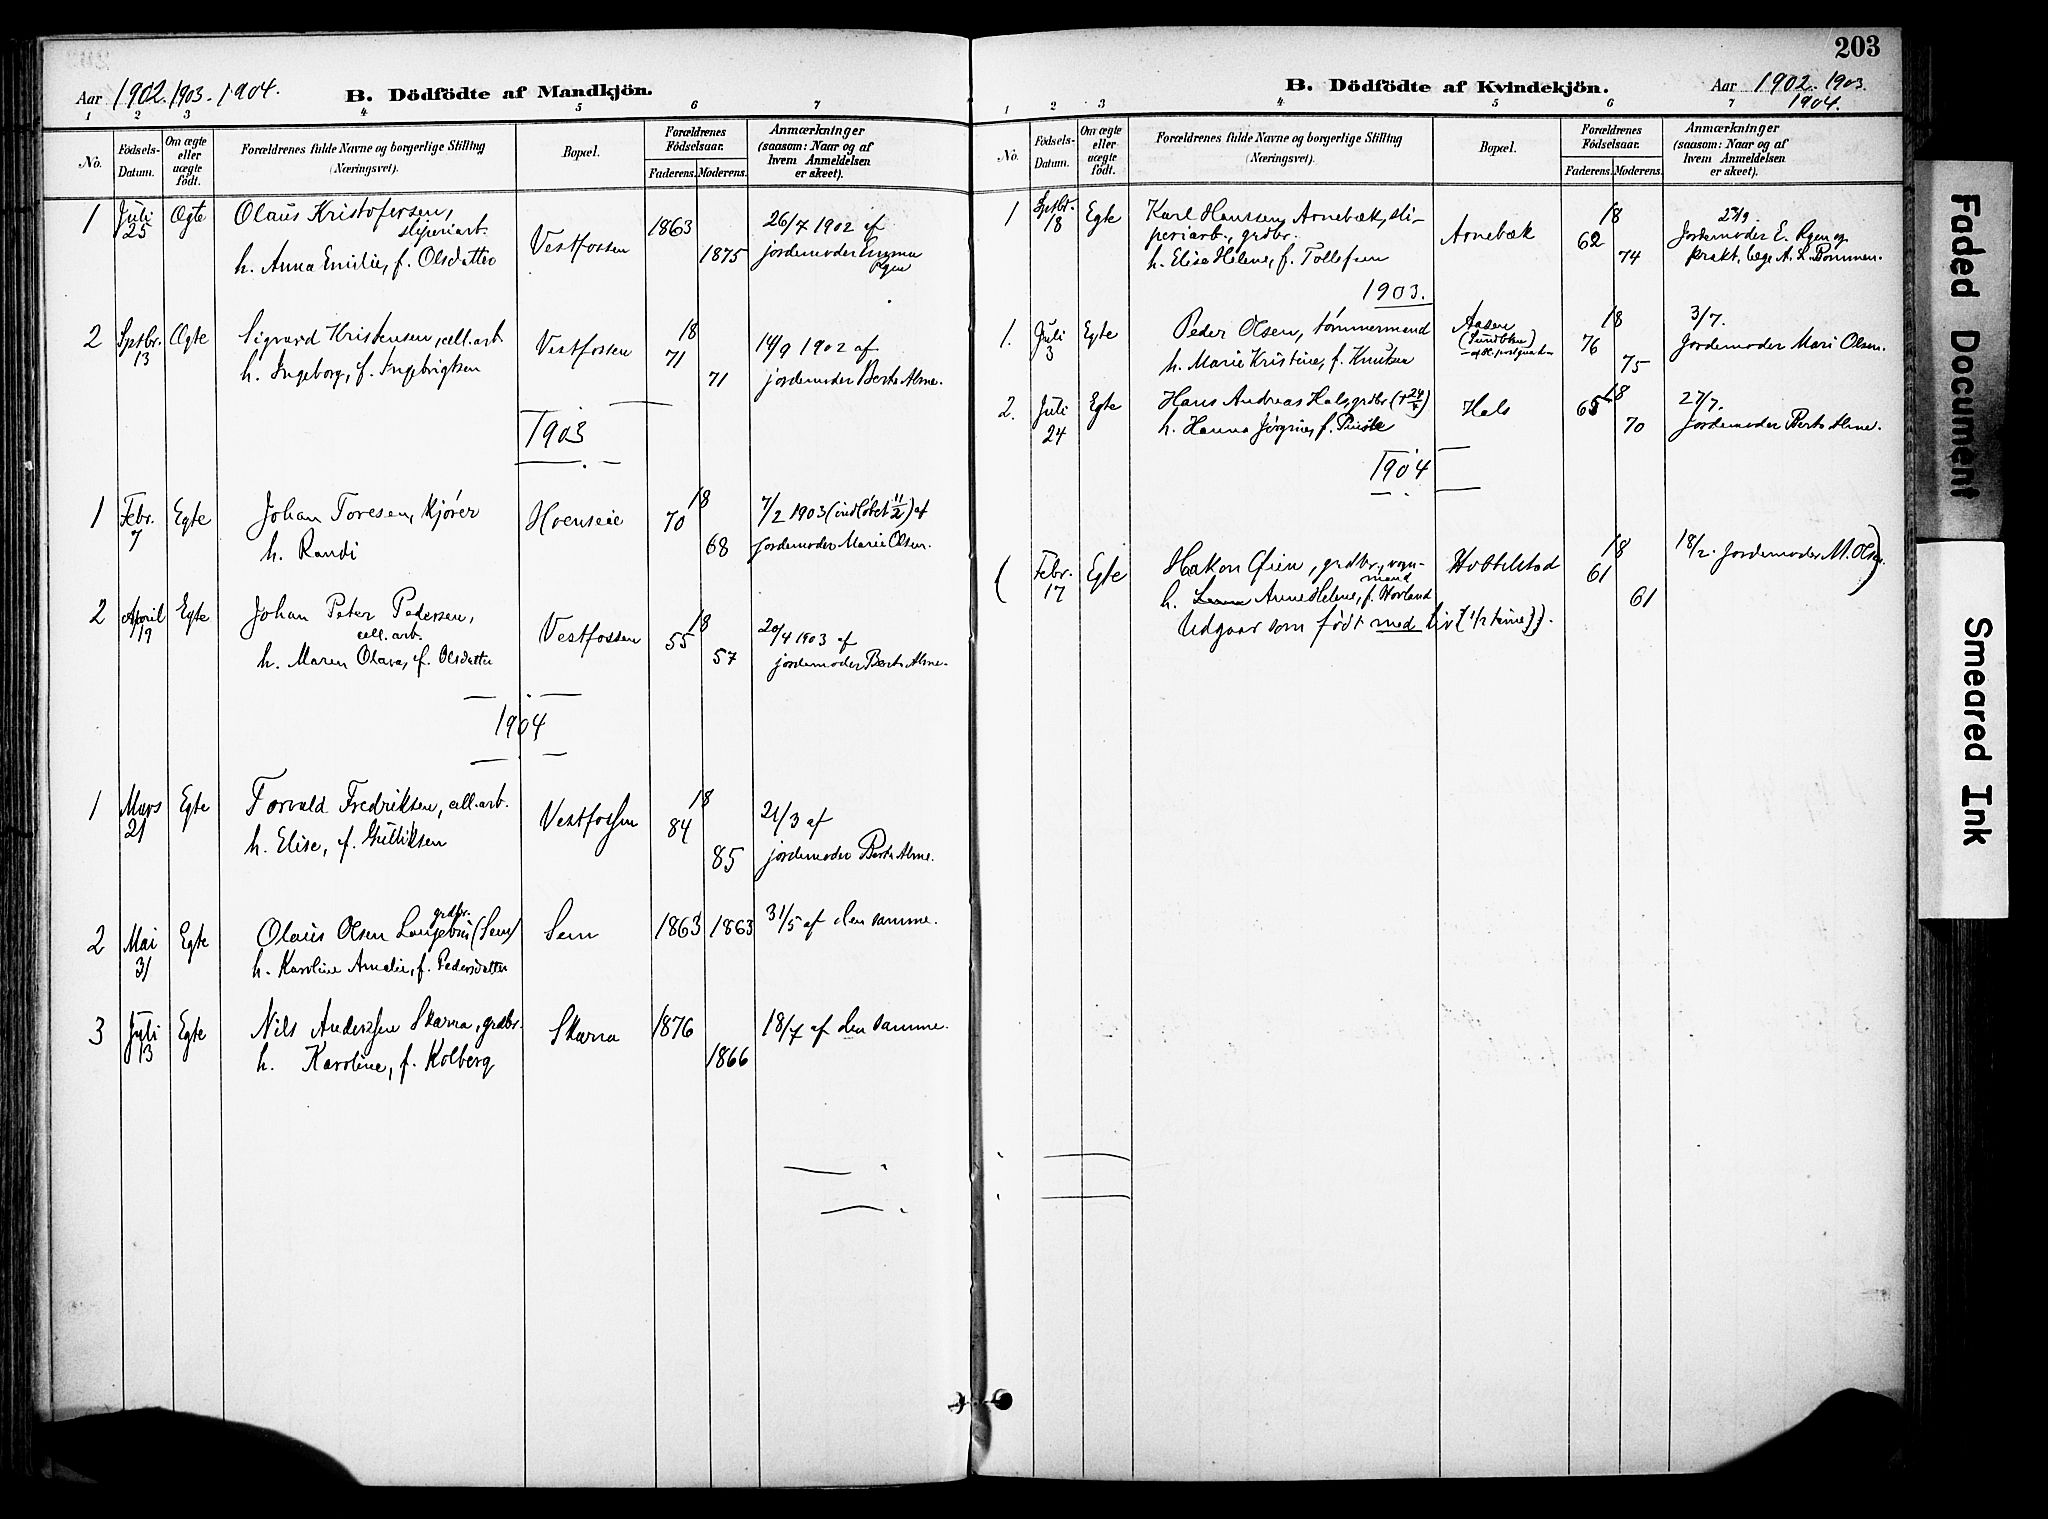 203
Aar 1902. 1903. 1904.
B. Dödfödte af Mandkjön.
1 2 3 4 5 6 7
No.
Födsels-Datum.
Om ægte eller uægte født.
Forældrenes fulde Navne og borgerlige Stilling
(Næringsvei).
Bopæl.
Forældrenes Fødselsaar.
Faderens. Moderens.
Anmærkninger
(saasom: Naar og af
hvem Anmeldelsen
er skeet).
1 Juli 25 Ægte Olaus Kristofersen,
sliperiarb.
h. Anna Emilie, f. Olsdatter
Vestfossen 1863 1875
26/7 1902 af
jordemoder Emma
Rgen
2 Sptbr. 13 Ægte Sigvard Kristensen, cell.arb.
h. Ingeborg, f. Ingebrigtsen
Vestfossen 18 71 71
14/9 1902 af
jordemoder Berte Alme.
1903
1 Febr. 7 Egte Johan Toresen, kjører
h. Randi
Hoenseie 18 70 68
7/2 1903 (indløbet 11/2) af
jordemoder Marie Olsen.
2 April 19 Egte Johan Peter Pedersen,
cell.arb.
h. Maren Olava, f. Olsdatter
Vestfossen 18 55 57
20/4 1903 af
jordemoder Berte Alme.
1904
1 Mars 21 Egte Torvald Fredriksen, cell.arb.
h. Elise, f. Gulliksen
Vestfossen 18 84 85
21/3 af
jordemoder Berte Alme.
2 Mai 31 Egte Olaus Olsen Langebru (Sem) grdbr.
h. Karoline Amalie, f. Pedersdatter
Sem 1863 1863
31/5 af den samme.
3 Juli 13 Egte Nils Anderssen Skarra, grdbr.
h. Karoline, f. Kolberg
Skarra 1876 1866
18/7 af den samme.
B. Dödfödte af Kvindekjön.
Aar 1902. 1903.
1904.
1 2 3 4 5 6 7
No.
Födsels-Datum.
Om ægte eller uægte født.
Forældrenes fulde Navne og borgerlige Stilling
(Næringsvei).
Bopæl.
Forældrenes Fødselsaar.
Faderens. Moderens.
Anmærkninger
(saasom: Naar og af
hvem Anmeldelsen
er skeet).
1 Sptbr. 18 Egte Karl Hanssen Arnebæk, sli-
periarb., grdbr.
h. Elise Helene, f. Tollefsen
Arnebæk 18 62 74
Jordemoder E. Rgen og
prakt. læge A. L. Tommen.
1903.
1. Juli 3 Egte Peder Olsen, tømmermand
h. Marie Kristine, f. Knutsen
Aasen
18 76 75
3/7.
Jordemoder Mari Olsen.
2. Juli 24 Egte Hans Andreas Hals grdbr
h. Hanna Jørgine, f.
Hals 18 65 70
27/7.
Jordemoder Berte Alme.
1904
( Febr. 17 Egte Hakon Øien, grdbr., vogn-
mand
h. Anne Helene, f. Hovland
Hottelstad 18 61 61
18/2. Jordemoder M. Olsen)
Udgaar som født med liv (1/2 time)).
Faded Document
Smeared Ink